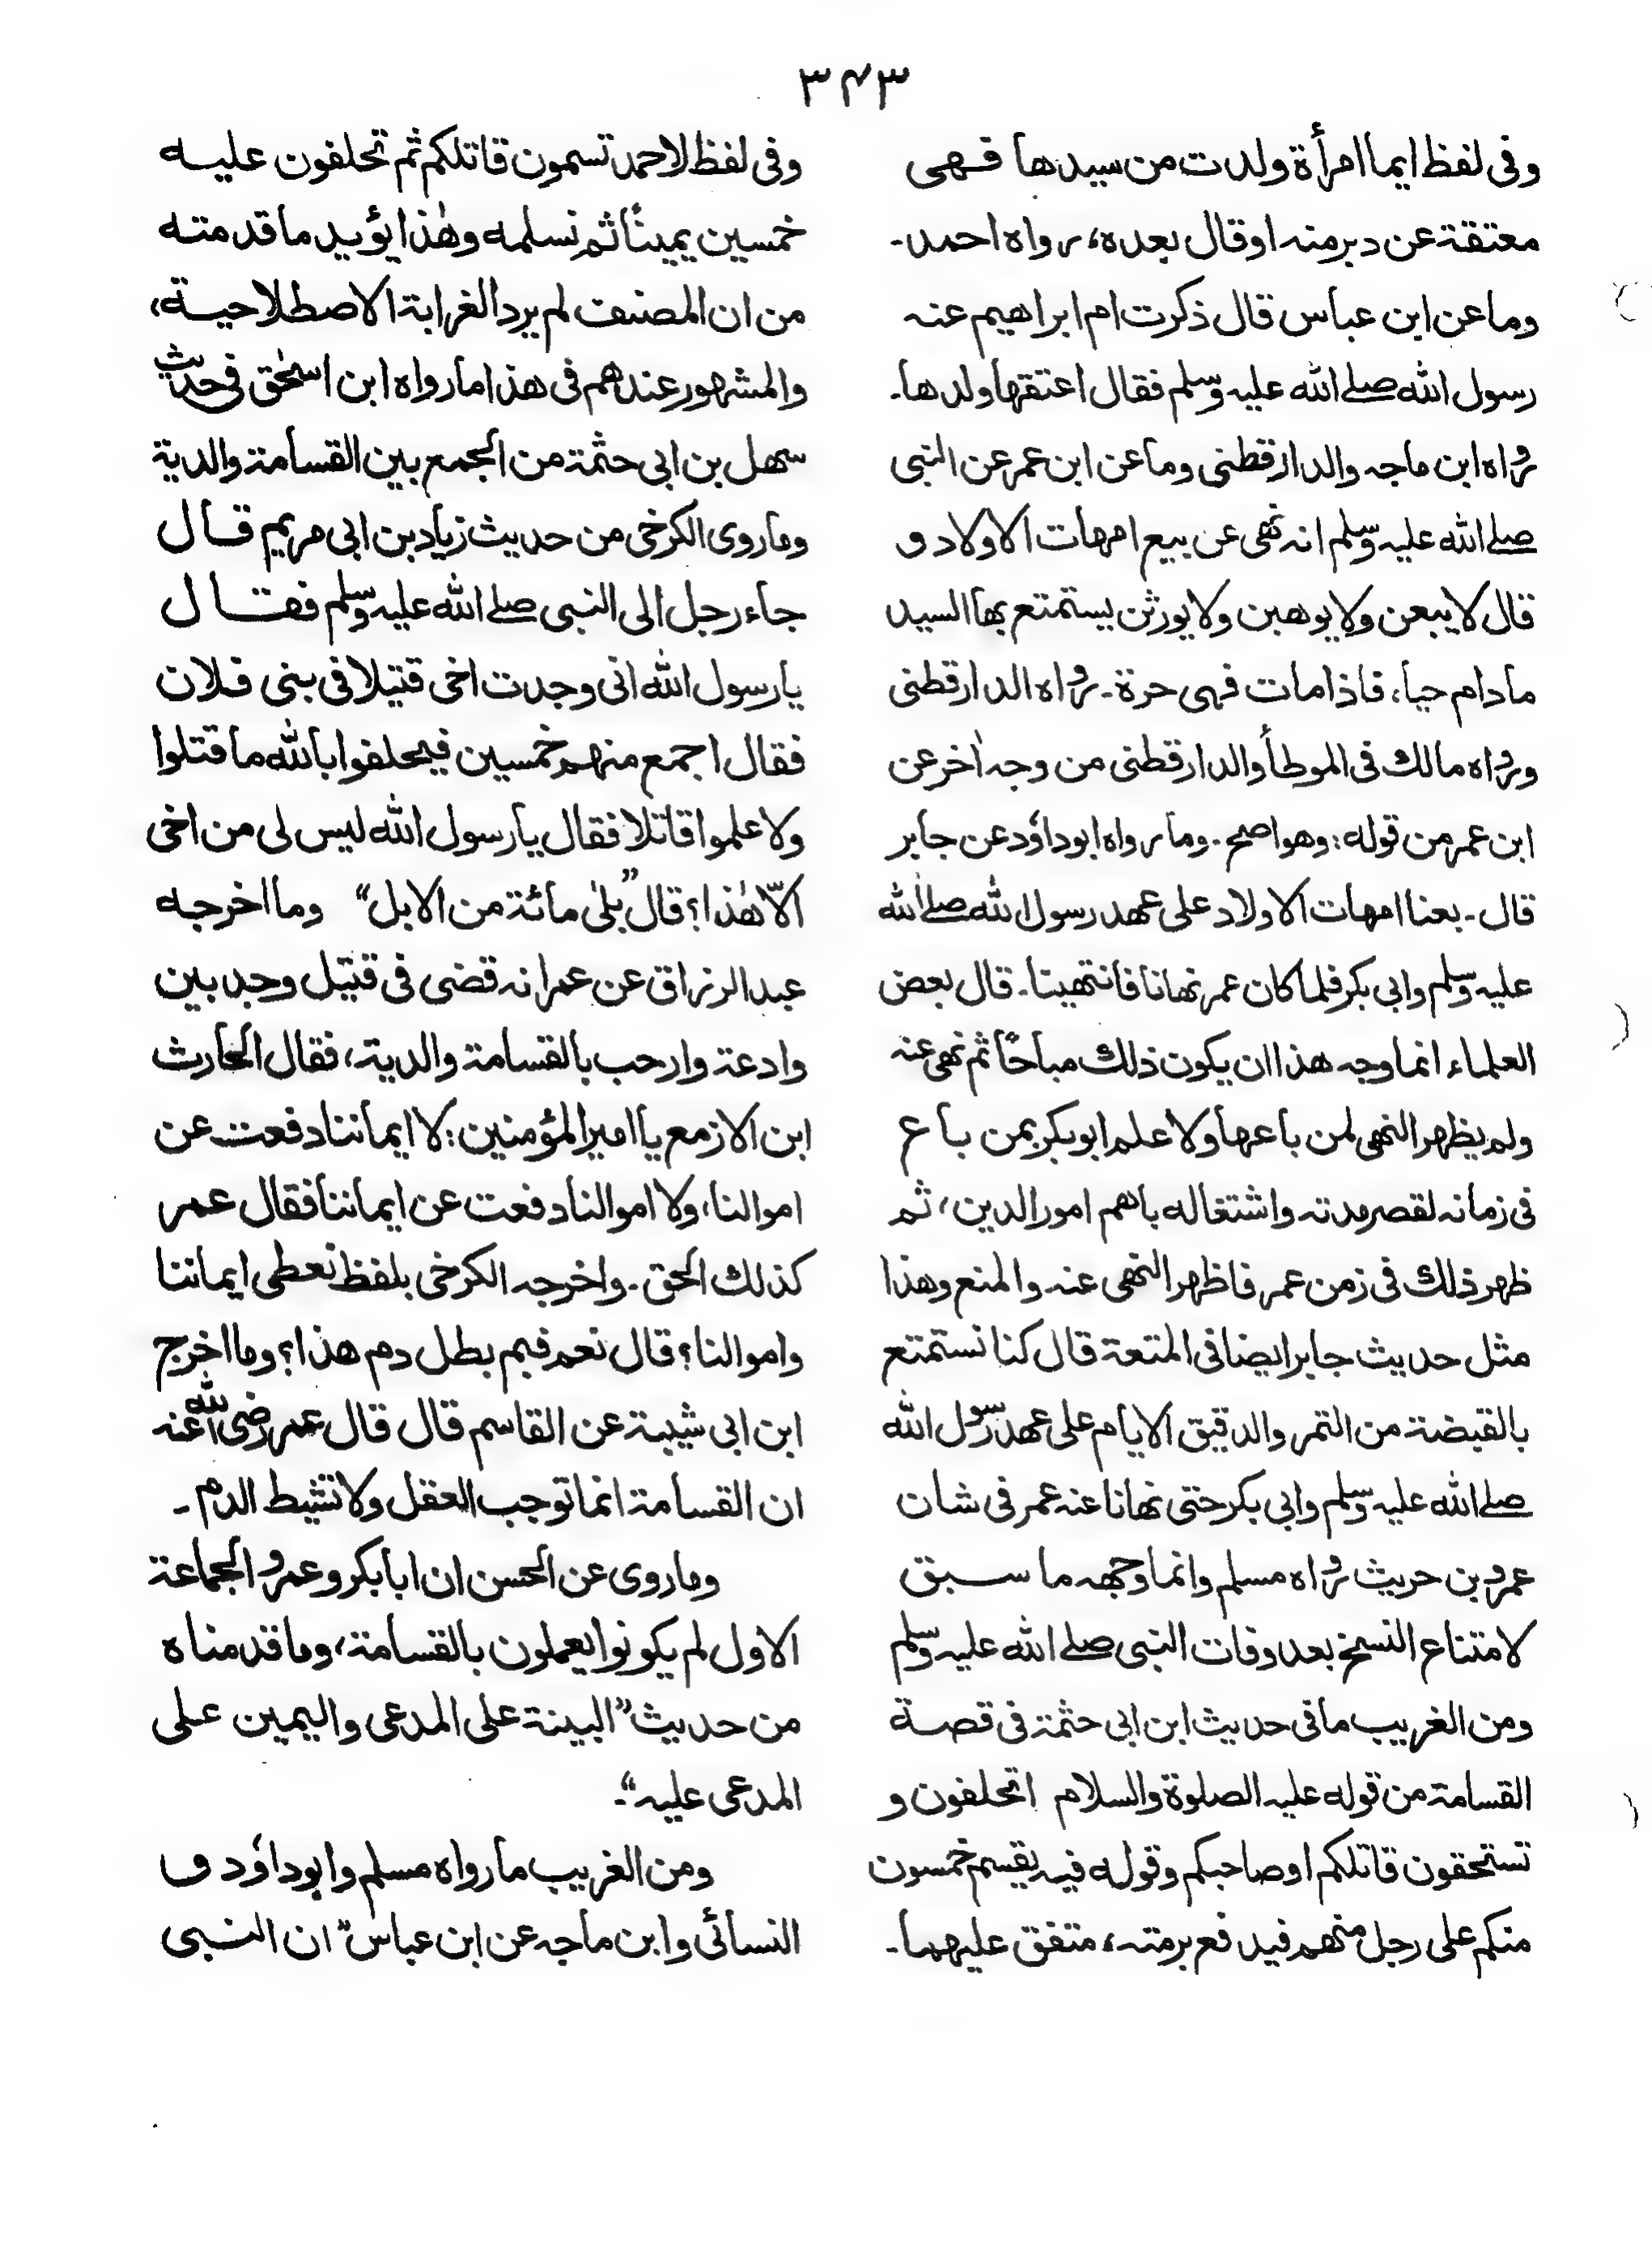 ۳۴۳
وفی لفظ ایما امرأة ولدت من سیدها فهی
معتقة عن دبر منه او قال بعده، رواه احمد۔
وما عن ابن عباس قال ذکرت ام ابراهیم عنه
رسول الله صلے الله علیه وسلم فقال اعتقها ولدها۔
رواه ابن ماجه والدارقطنی وما عن ابن عمر عن النبی
صلے الله علیه وسلم انه نهی عن بیع امهات الاولاد و
قال لا یبعن ولا یوهبن ولا یورثن یستمتع بها السید
مادام حیا، فاذا مات فهی حرة۔ رواه الدارقطنی
ورواه مالك فی الموطأ والدارقطنی من وجه اٰخر عن
ابن عمر من قوله: وهو اصح۔ وما رواه ابوداؤد عن جابر
قال۔ بعنا امهات الاولاد علی عهد رسول الله صلے الله
علیه وسلم وابی بکر فلما کان عمر نهانا فانتهینا۔ قال بعض
العلماء انما وجه هذا ان یکون ذلك مباحًا ثم نهی عنه
ولم یظهر النهی لمن باعها ولا علم ابوبکر بمن باع
فی زمانه لقصر مدته واشتغاله باهم امور الدین، ثم
ظهر ذلك فی زمن عمر فاظهر النهی عنه والمنع وهذا
مثل حدیث جابر ایضا فی المتعة قال کنا نستمتع
بالقبضة من التمر والدقیق الایام علی عهد رسول الله
صلے الله علیه وسلم وابی بکر حتی نهانا عنه عمر فی شان
عمرو بن حریث رواه مسلم وانما وجهه ما سبق
لامتناع النسخ بعد وفات النبی صلے الله علیه وسلم
ومن الغریب ما فی حدیث ابن ابی حثمة فی قصة
القسامة من قوله علیه الصلوة والسلام اتحلفون و
تستحقون قاتلکم او صاحبکم وقوله فیه یقسم خمسون
منکم علی رجل منهم فیدفع برمته، متفق علیهما۔
وفی لفظ لاحمد تسمون قاتلکم ثم تحلفون علیه
خمسین یمینًا ثم نسلمه وهٰذا یؤید ما قدمته
من ان المصنف لم یرد الغرابة الاصطلاحیة،
والمشهور عندهم فی هذا ما رواه ابن اسحٰق فی حدیث
سهل بن ابی حثمة من الجمع بین القسامة والدیة
وما روی الکرخی من حدیث زیاد بن ابی مریم قال
جاء رجل الی النبی صلے الله علیه وسلم فقال
یا رسول الله انی وجدت اخی قتیلا فی بنی فلان
فقال اجمع منهم خمسین فیحلفوا بالله ما قتلوا
ولا علموا قاتلا فقال یا رسول الله لیس لی من اخی
الّا هٰذا؟ قال ”بلٰی مائة من الابل“ وما اخرجه
عبدالرزاق عن عمر انه قضی فی قتیل وجد بین
وادعة وارحب بالقسامة والدیة، فقال الحارث
ابن الازمع یا امیر المؤمنین: لا ایماننا دفعت عن
اموالنا، ولا اموالنا دفعت عن ایماننا فقال عمر
کذلك الحق۔ واخرجه الکرخی بلفظ نعطی ایماننا
واموالنا؟ قال نعم فبم بطل دم هذا؟ وما اخرج
ابن ابی شیبة عن القاسم قال قال عمر رضی الله عنه
ان القسامة انما توجب العقل ولا تشیط الدم۔
وما روی عن الحسن ان ابا بکر وعمر والجماعة
الاول لم یکونوا یعملون بالقسامة، وما قدمناه
من حدیث ”البینة علی المدعی والیمین علی
المدعی علیه“۔
ومن الغریب ما رواه مسلم وابوداؤد و
النسائی وابن ماجه عن ابن عباس ”ان النبی